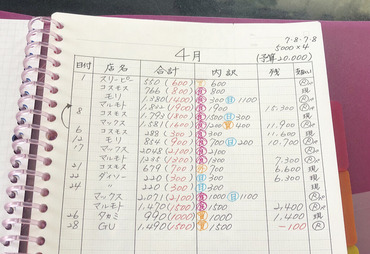 7-8・7-8
5000×4
4月 (予算20.000)
日付 店名 合計 内訳 残
1 スリーピー 550(600) 600
コスモス 766(800) 800
モリ 1380(1400) 300 日1100
8 マルモト 1.902(1900) 1900 15.300
コスモス 1.793(1800) 1500 300
マックス 1.581(1600) 1200 400 11.900 現
6 コスモス 288(300) 300 11.600 現
12 モリ 854(900) 700 日200 10.700 現
17 マックス 2048(2100) 2100
マルモト 1235(1300) 1300 7.300
21 コスモス 679(700) 700 6.600 現
22 ダイソー 220(300) 日300 6.300 現
24 〃 220(300) 日300 現
マックス 2.071(2100) 1000 日1100
マルモト 1.470(1500) 1500 2.400
26 タカミ 990(1000) 1000 1.400 現
28 GU 1.490(1500) 1500 -100